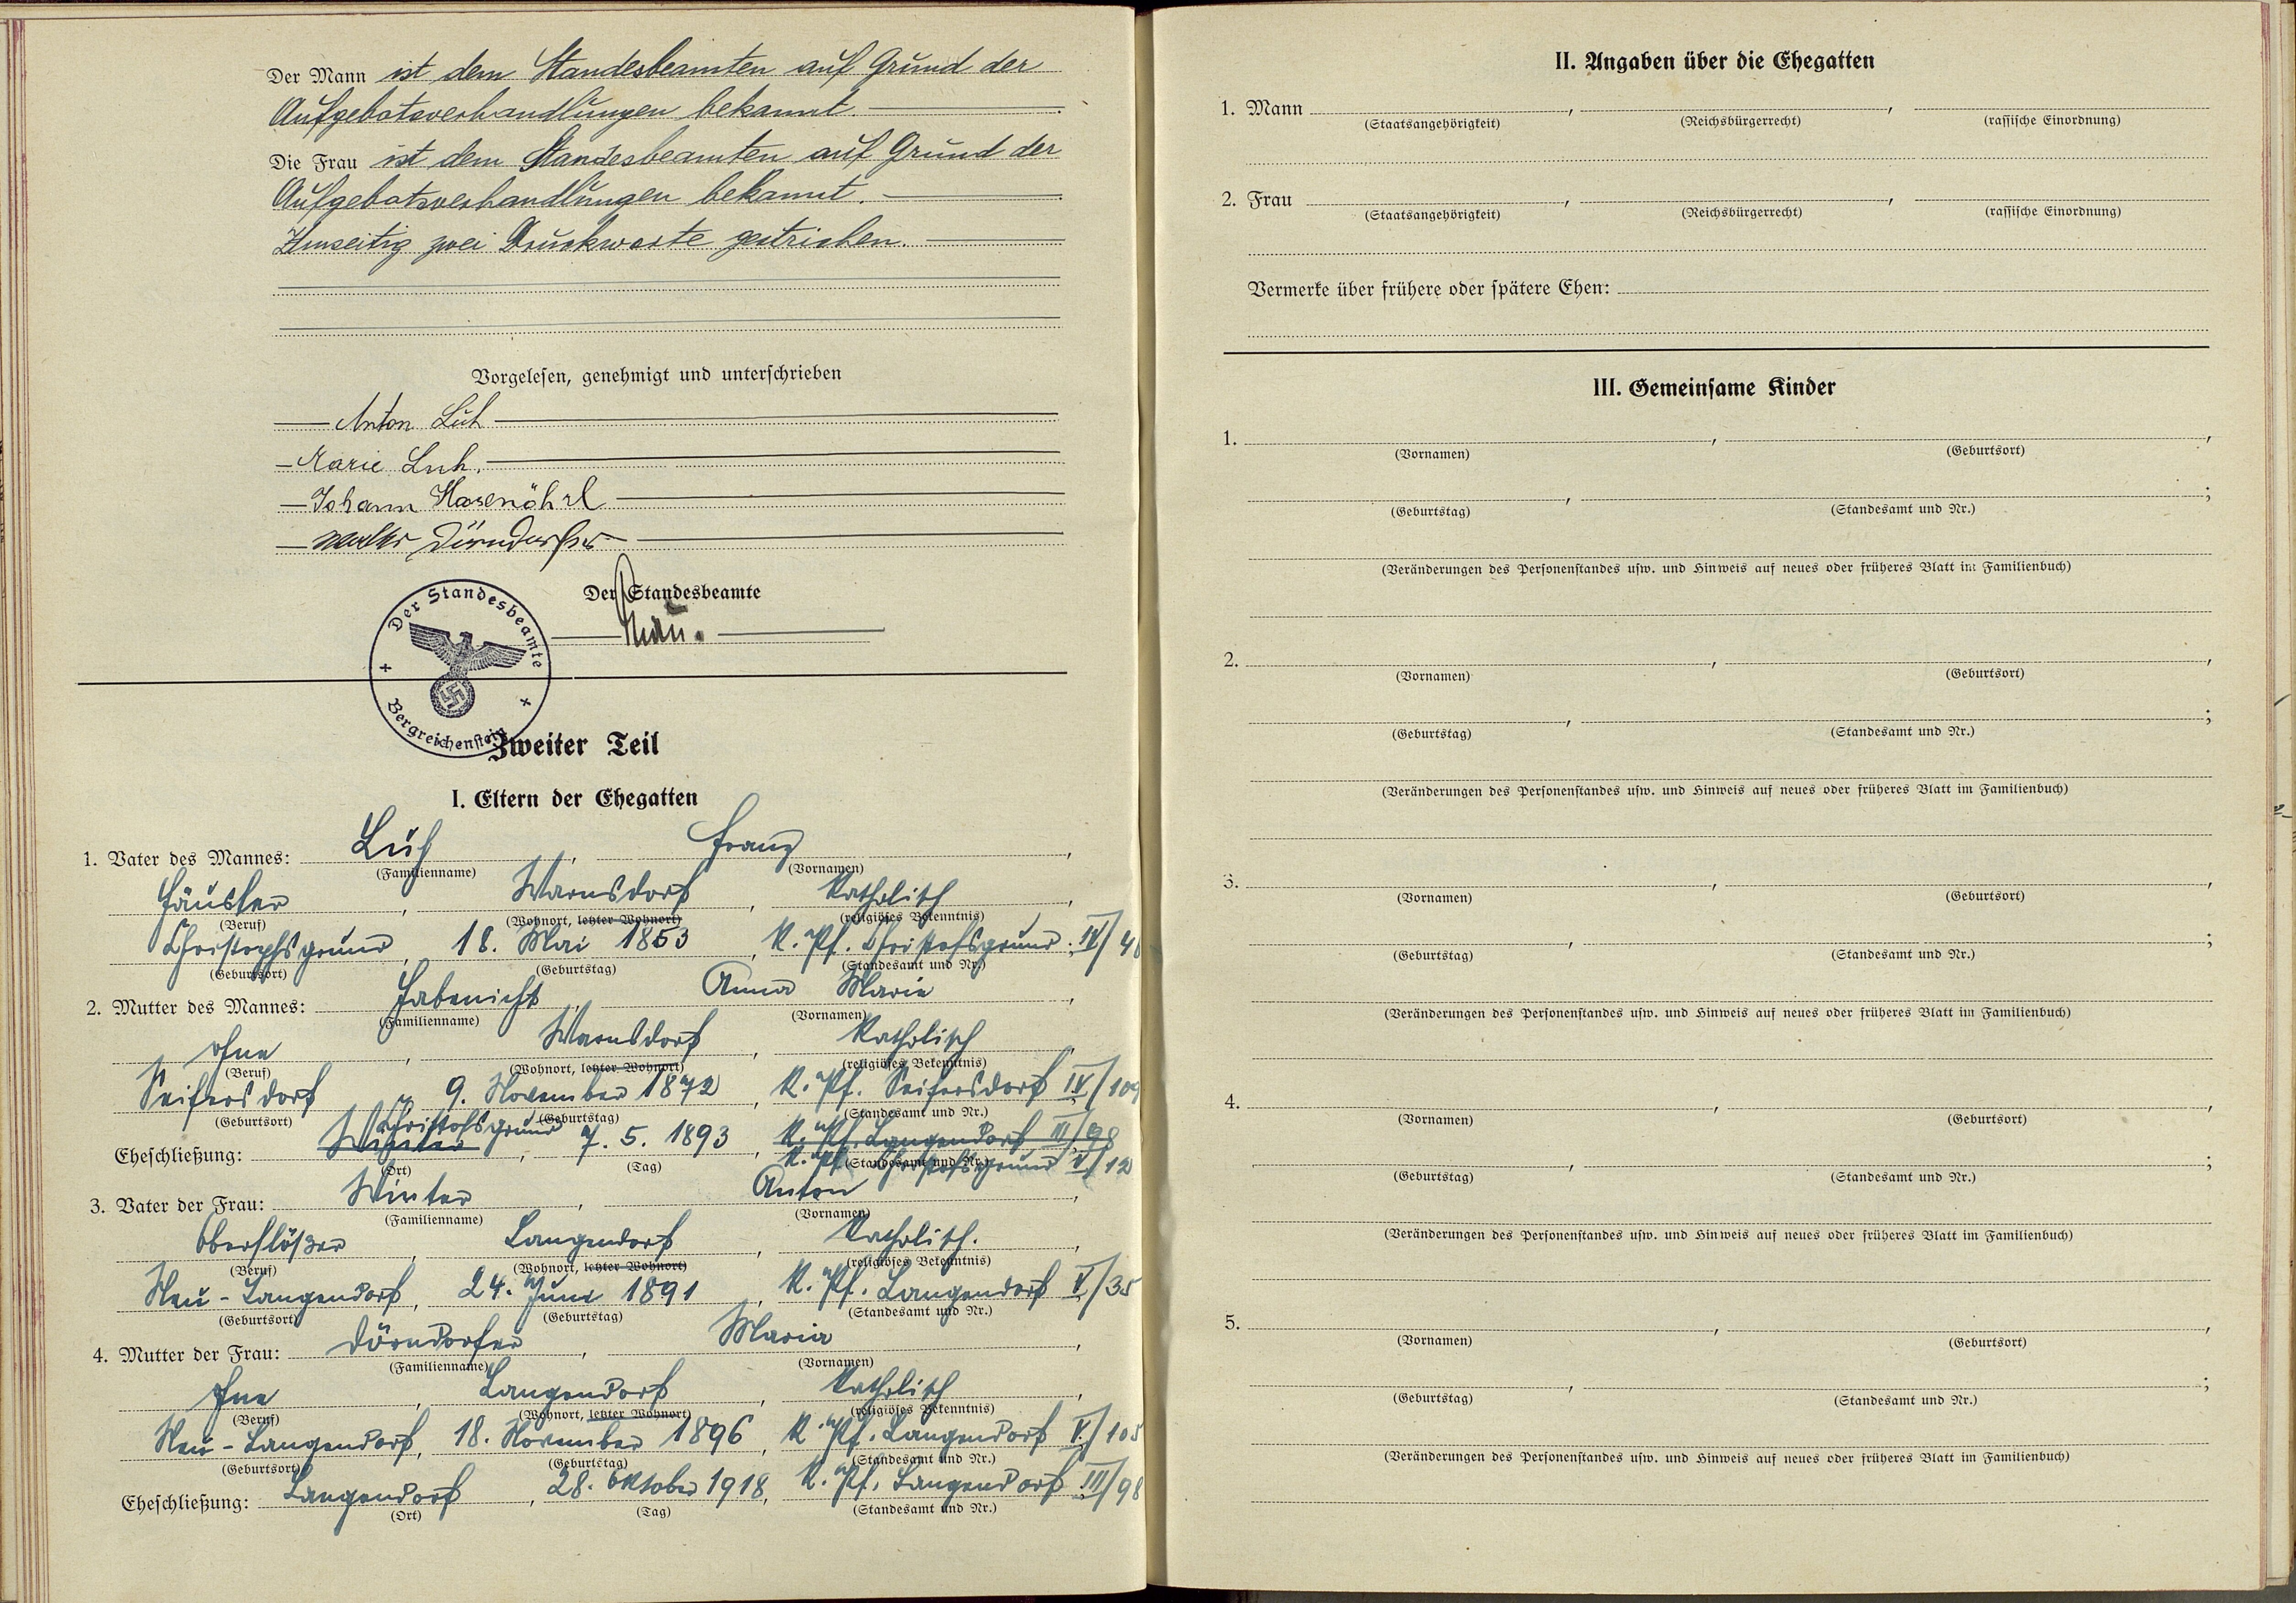 Der Mann ist dem Standesbeamten auf Grund der
Aufgebotsverhandlungen bekannt.
Die Frau ist dem Standesbeamten auf Grund der
Aufgebotsverhandlungen bekannt.
Umseitig zwei Druckworte gestrichen.
Vorgelesen, genehmigt und unterschrieben
Anton Luh
Marie Luh.
Johann Hasenöhrl
Dörndorfer
Der Standesbeamte
Der Standesbeamte
Bergreichenstein
Zweiter Teil
I. Eltern der Ehegatten
1. Vater des Mannes: Luh, Franz,
(Familienname) (Vornamen)
Häusler, Warnsdorf, Katholisch,
(Beruf) (Wohnort, letzter Wohnort) (religiöses Bekenntnis)
Christophsgrund, 18. Mai 1853, K. Pf. Christofsgrund. IV/4
(Geburtsort) (Geburtstag) (Standesamt und Nr.)
2. Mutter des Mannes: Habenicht, Anna Marie,
(Familienname) (Vornamen)
ohne, Warnsdorf, Katholisch,
(Beruf) (Wohnort, letzter Wohnort) (religiöses Bekenntnis)
Seifersdorf, 9. November 1872, K. Pf. Seifersdorf IV/109
(Geburtsort) (Geburtstag) (Standesamt und Nr.)
Christofsgrund K. Pf. Langendorf III/98
Eheschließung: Winter, 7. 5. 1893, K. Pf. Christofsgrund V/12
(Ort) (Tag) (Standesamt und Nr.)
3. Vater der Frau: Winter, Anton,
(Familienname) (Vornamen)
Oberflößer, Langendorf, Katholisch.,
(Beruf) (Wohnort, letzter Wohnort) (religiöses Bekenntnis)
Neu-Langendorf, 24. Juni 1891, K. Pf. Langendorf V/35
(Geburtsort) (Geburtstag) (Standesamt und Nr.)
4. Mutter der Frau: Dörndorfer, Maria,
(Familienname) (Vornamen)
ohne, Langendorf, Katholisch,
(Beruf) (Wohnort, letzter Wohnort) (religiöses Bekenntnis)
Neu-Langendorf, 18. November 1896, K. Pf. Langendorf V./105
(Geburtsort) (Geburtstag) (Standesamt und Nr.)
Eheschließung: Langendorf, 28. Oktober 1918, K. Pf. Langendorf III/98
(Ort) (Tag) (Standesamt und Nr.)
II. Angaben über die Ehegatten
1. Mann , ,
(Staatsangehörigkeit) (Reichsbürgerrecht) (rassische Einordnung)
2. Frau , ,
(Staatsangehörigkeit) (Reichsbürgerrecht) (rassische Einordnung)
Vermerke über frühere oder spätere Ehen:
III. Gemeinsame Kinder
1. , ,
(Vornamen) (Geburtsort)
, ;
(Geburtstag) (Standesamt und Nr.)
(Veränderungen des Personenstandes usw. und Hinweis auf neues oder früheres Blatt im Familienbuch)
2. , ,
(Vornamen) (Geburtsort)
, ;
(Geburtstag) (Standesamt und Nr.)
(Veränderungen des Personenstandes usw. und Hinweis auf neues oder früheres Blatt im Familienbuch)
3. , ,
(Vornamen) (Geburtsort)
, ;
(Geburtstag) (Standesamt und Nr.)
(Veränderungen des Personenstandes usw. und Hinweis auf neues oder früheres Blatt im Familienbuch)
4. , ,
(Vornamen) (Geburtsort)
, ;
(Geburtstag) (Standesamt und Nr.)
(Veränderungen des Personenstandes usw. und Hinweis auf neues oder früheres Blatt im Familienbuch)
5. , ,
(Vornamen) (Geburtsort)
, ;
(Geburtstag) (Standesamt und Nr.)
(Veränderungen des Personenstandes usw. und Hinweis auf neues oder früheres Blatt im Familienbuch)